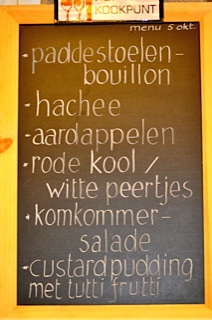 KOOKPUNT
menu 5 okt.
* paddestoelen-
bouillon
- hachee
* aardappelen
* rode kool /
witte peertjes
* komkommer-
salade
* custardpudding
met tutti frutti